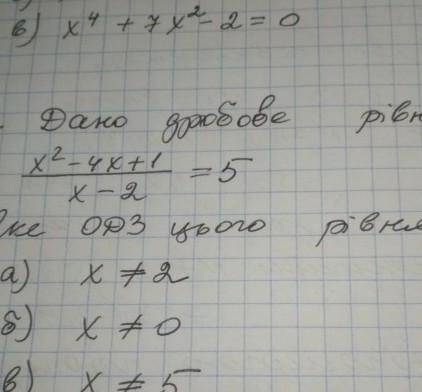 в) x⁴ + 7x² - 2 = 0
Дано дробове рівн
x² - 4x + 1
x - 2
= 5
ке ОДЗ цього рівня
а) x ≠ 2
б) x ≠ 0
в) x ≠ 5